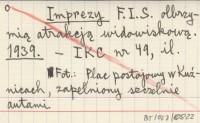 Imprezy F.I.S. olbrzy-
mią atrakcją widowiskową.
1939. - IKC nr 49, il.
Fot.: Plac postojowy w Kuź-
nicach, zapełniony szczelnie
autami.